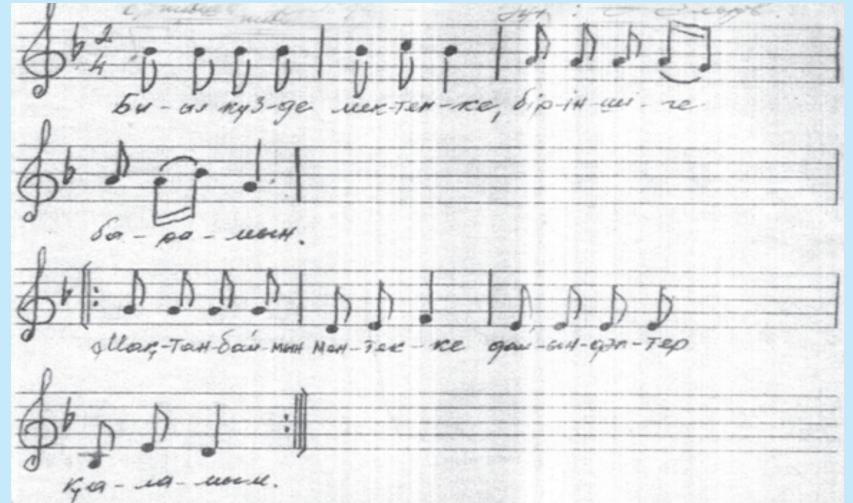 2
4
Би-ыл күз-де мек-теп-ке, бір-ін-ші-ге
ба-ра-мын.
Мақ-тан-бай-мын мен-тек-ке дай-ын-дәп-тер
қа-ла-мым.